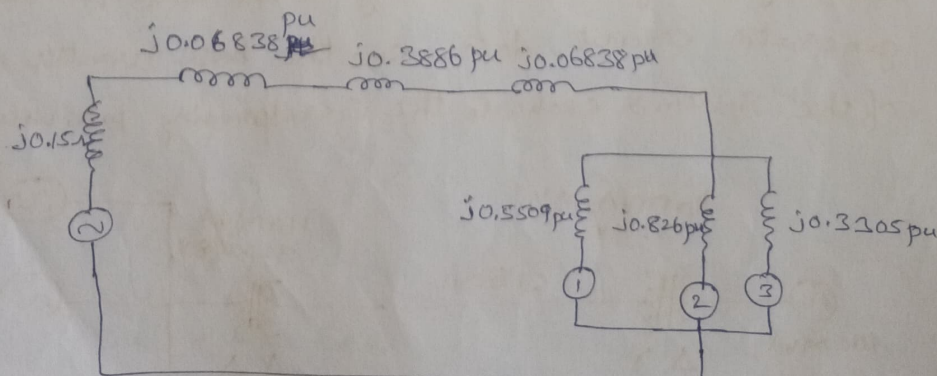 pu
j0.06838 j0.3886 pu j0.06838 pu
j0.15
j0.5509 pu j0.826 pu j0.3305 pu
1 2 3